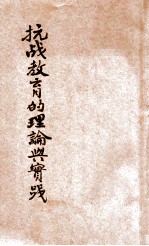 抗战教育的理論與實践